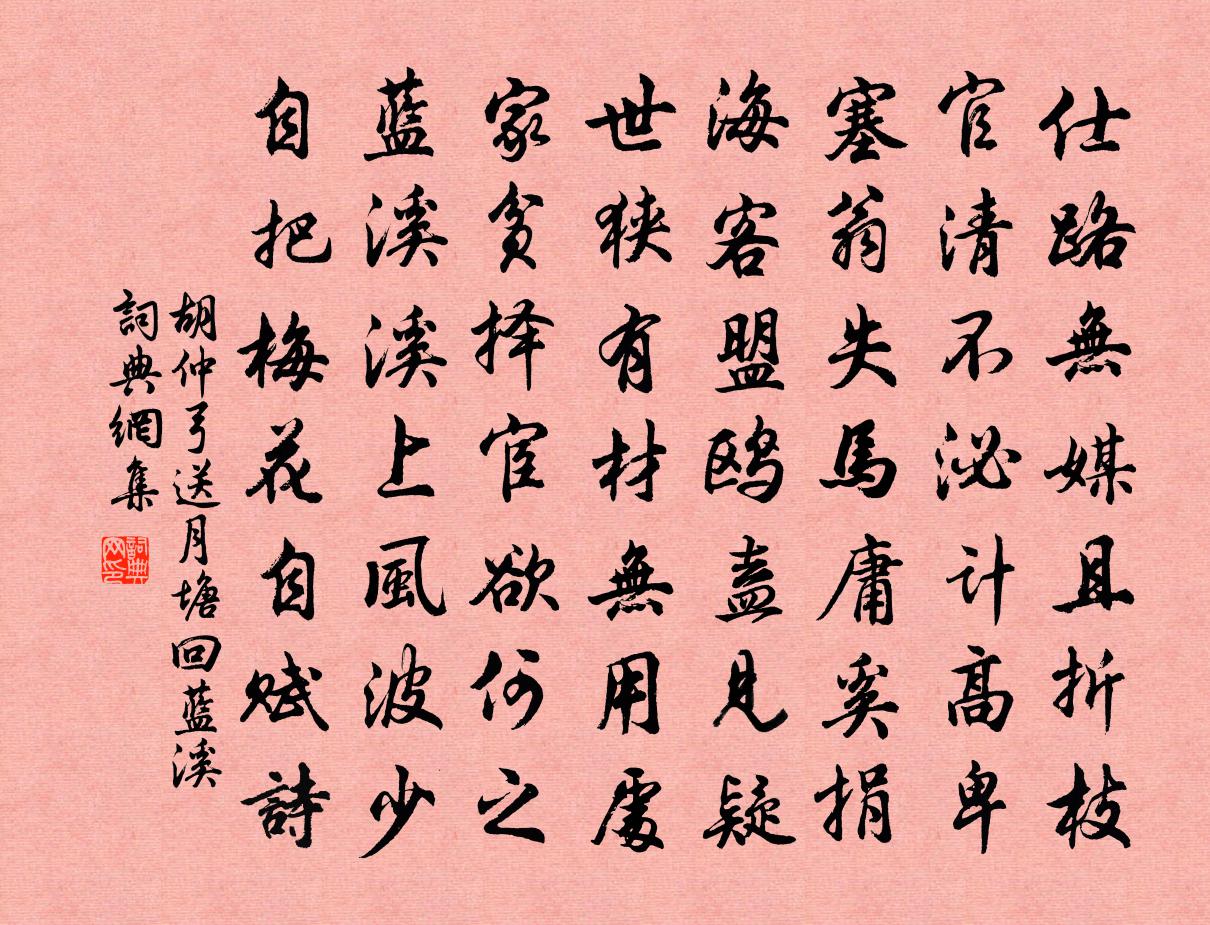 仕路無媒且折枝
官清不泌計高卑
塞翁失馬庸奚捐
海客盟鸥盍見疑
世狹有材無用處
家貧择官欲何之
藍溪溪上風波少
自把梅花自賦詩
胡仲弓送月塘回藍溪
詞典網集
詞典网印